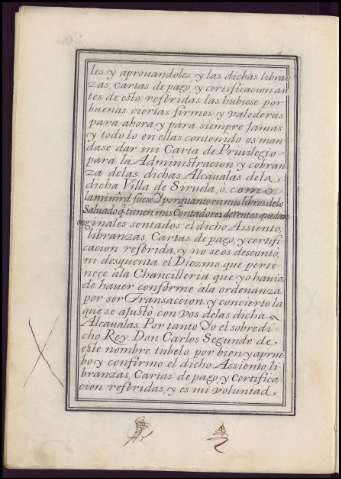 les y aprouandoles y las dichas libran
zas, Cartas de pago, y certificacion an
tes de esto referidas las hubiese por
buenas ciertas firmes y valederas
para ahora y para siempre Jamas
y todo lo en ellas contenido os man
dase dar mi Carta de Preuilegio
para la Administracion y cobran
za delas dichas Alcaualas dela
dicha Villa de Siruela, ò, como
la mi mrd fuese, Y por quanto en mis libros de lo
Saluado q tienen mis Contadores de rentas quedan
originales sentados el dicho Assiento,
libranzas, Cartas de pago, y certifi
cacion referida, y no se os desconto,
ni desquenta el Diezmo que perte
nece ala Chancilleria que yo hauia
de hauer conforme ala ordenanza
por ser Transaccion y concierto la
que se ajustò con vos delas dichas
Alcaualas. Por tanto Yo el sobredi
cho Rey Don Carlos Segundo de
este nombre tubelo por bien y aprue
bo y confirmo el dicho Assiento, li
branzas, Cartas de pago, y Certifica
cion referidas, y es mi voluntad